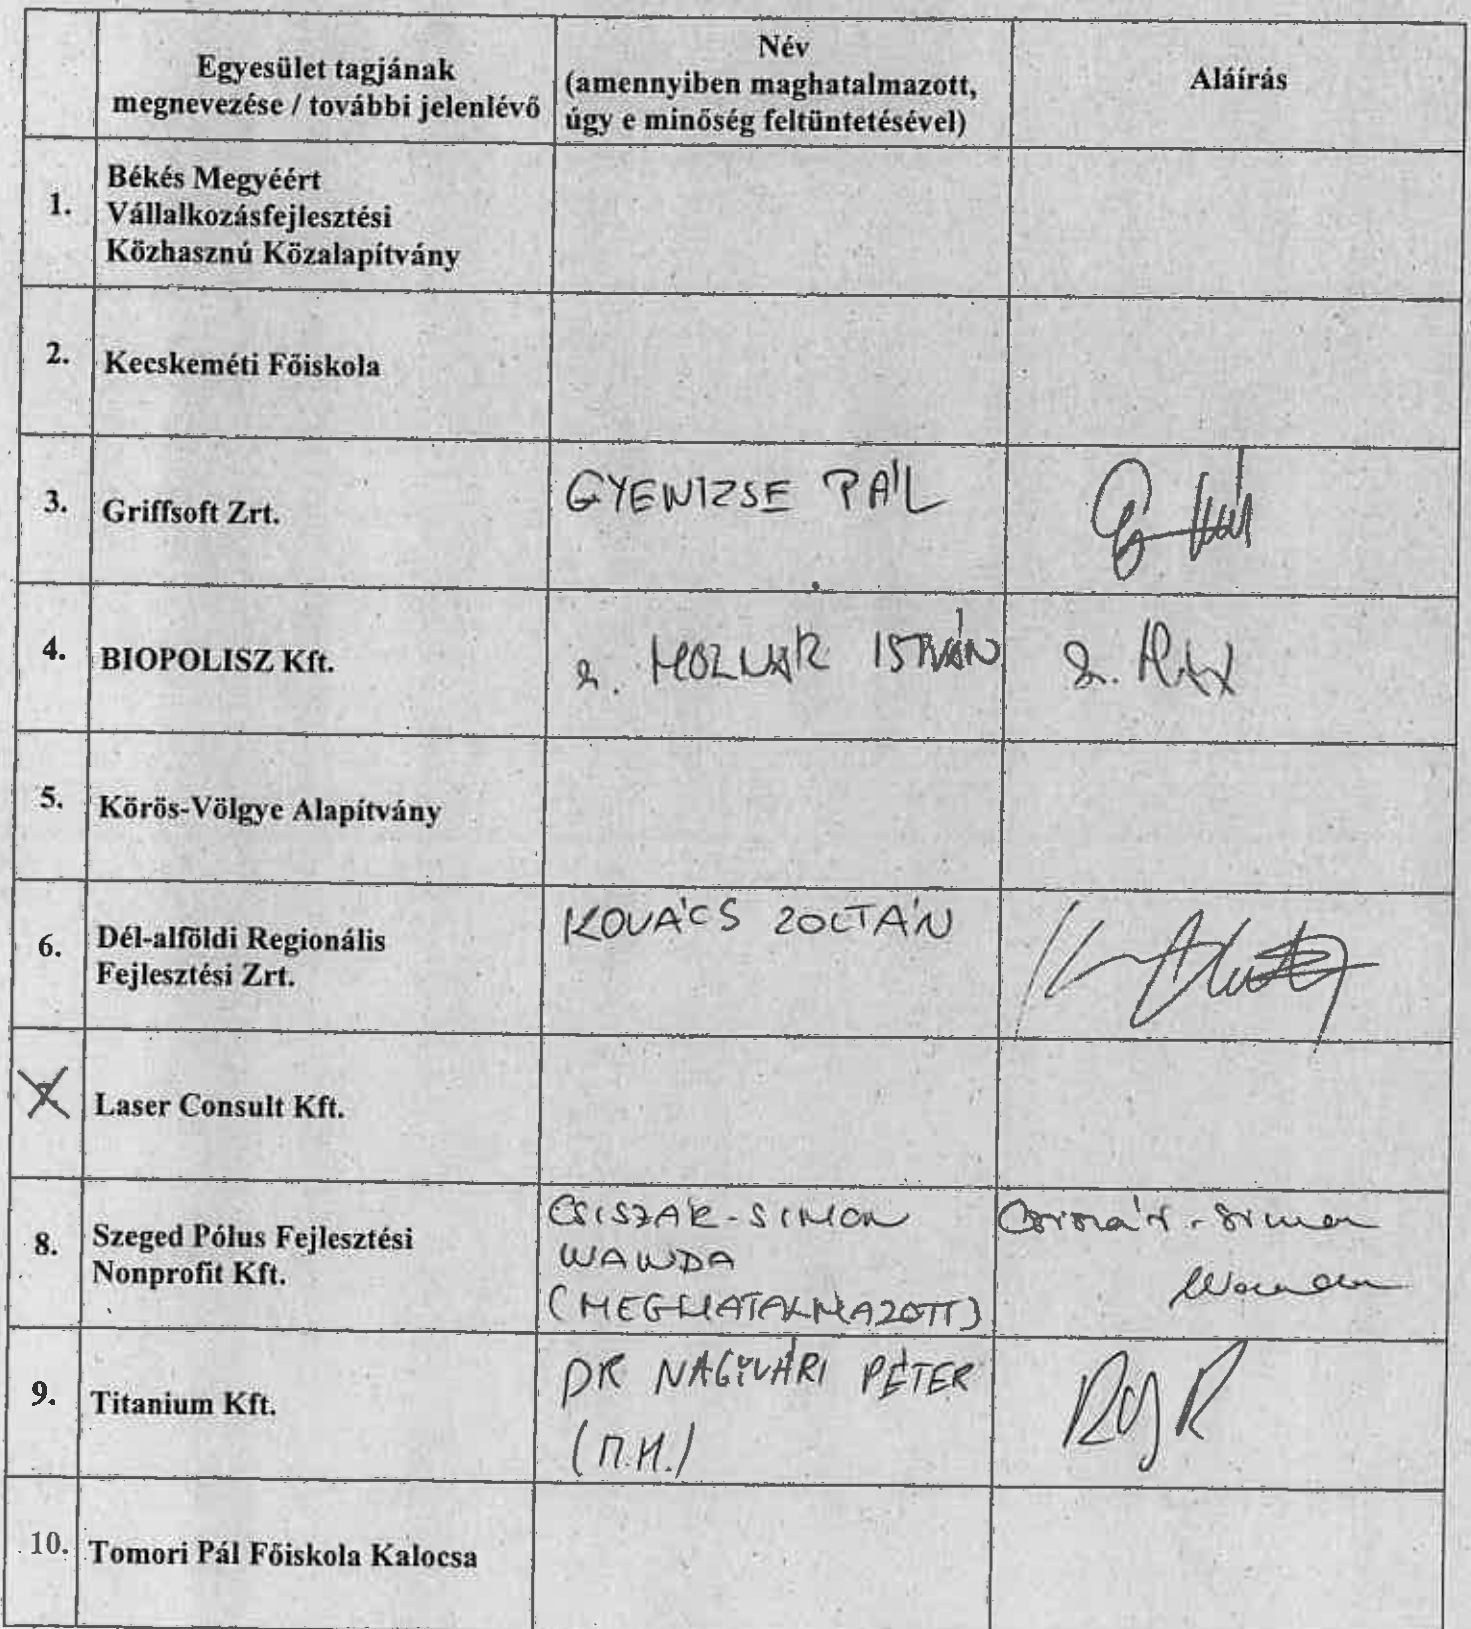 Egyesület tagjának
megnevezése / további jelenlévő
Név
(amennyiben maghatalmazott,
úgy e minőség feltüntetésével)
Aláírás
1.
Békés Megyéért
Vállalkozásfejlesztési
Közhasznú Közalapítvány
2.
Kecskeméti Főiskola
3.
Griffsoft Zrt.
GYENIZSE PÁL
4.
BIOPOLISZ Kft.
MOLNÁR ISTVÁN
5.
Körös-Völgye Alapítvány
6.
Dél-alföldi Regionális
Fejlesztési Zrt.
KOVÁCS ZOLTÁN
7.
Laser Consult Kft.
8.
Szeged Pólus Fejlesztési
Nonprofit Kft.
CSISZÁR-SIMON
WANDA
(MEGHATALMAZOTT)
Csiszár-Simon
Wanda
9.
Titanium Kft.
DR NAGYVÁRI PÉTER
(M.H.)
10.
Tomori Pál Főiskola Kalocsa